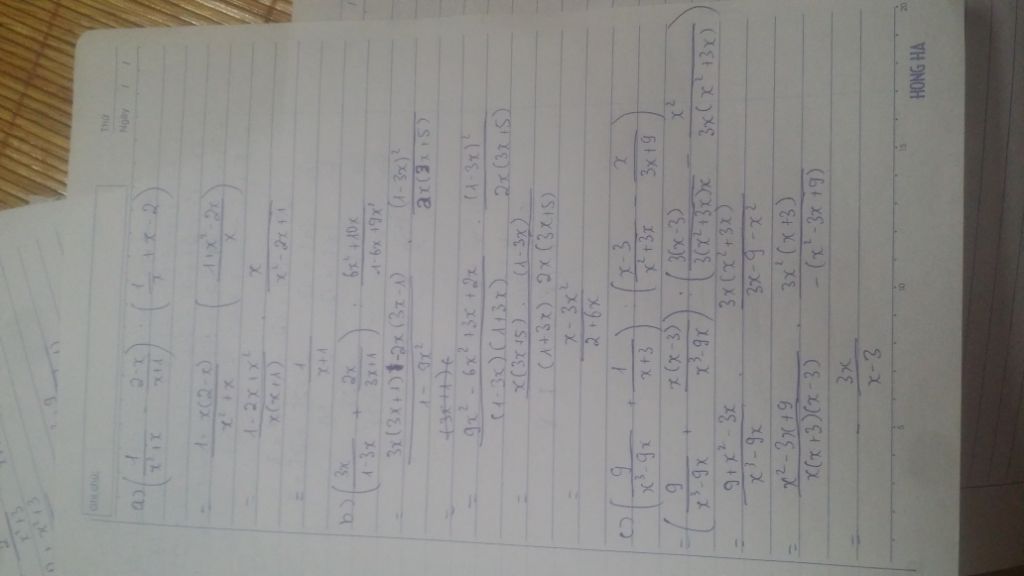 Thứ
Ngày / /
Ghi chú
a) (1/(x²+x) - (2-x)/(x+1)) : (1/x + x - 2)
= (1 - x(2-x))/(x²+x) : ((1+x²-2x)/x)
= (1-2x+x²)/(x(x+1)) . x/(x²-2x+1)
= 1/(x+1)
b) (3x/(1-3x) + 2x/(3x+1)) : (6x²+10x)/(1-6x+9x²)
= (3x(3x+1) - 2x(3x-1))/(1-9x²) . (1-3x)²/(2x(3x+5))
= (9x² - 6x² + 3x + 2x)/((1-3x)(1+3x)) . (1-3x)²/(2x(3x+5))
= (x(3x+5) . (1-3x))/((1+3x) . 2x(3x+5))
= (x-3x²)/(2+6x)
c) (9/(x³-9x) + 1/(x+3)) : ((x-3)/(x²+3x) - x/(3x+9))
= (9/(x³-9x) + x(x-3)/(x³-9x)) : (3(3x-3)/(3(x²+3x)x) - x²/(3x(x²+3x)))
= (9+x²-3x)/(x³-9x) . 3x(x²+3x)/(3x-9-x²)
= (x²-3x+9)/(x(x+3)(x-3)) . 3x²(x+3)/(-(x²-3x+9))
= 3x/(x-3)
HONG HA
5 10 15 20